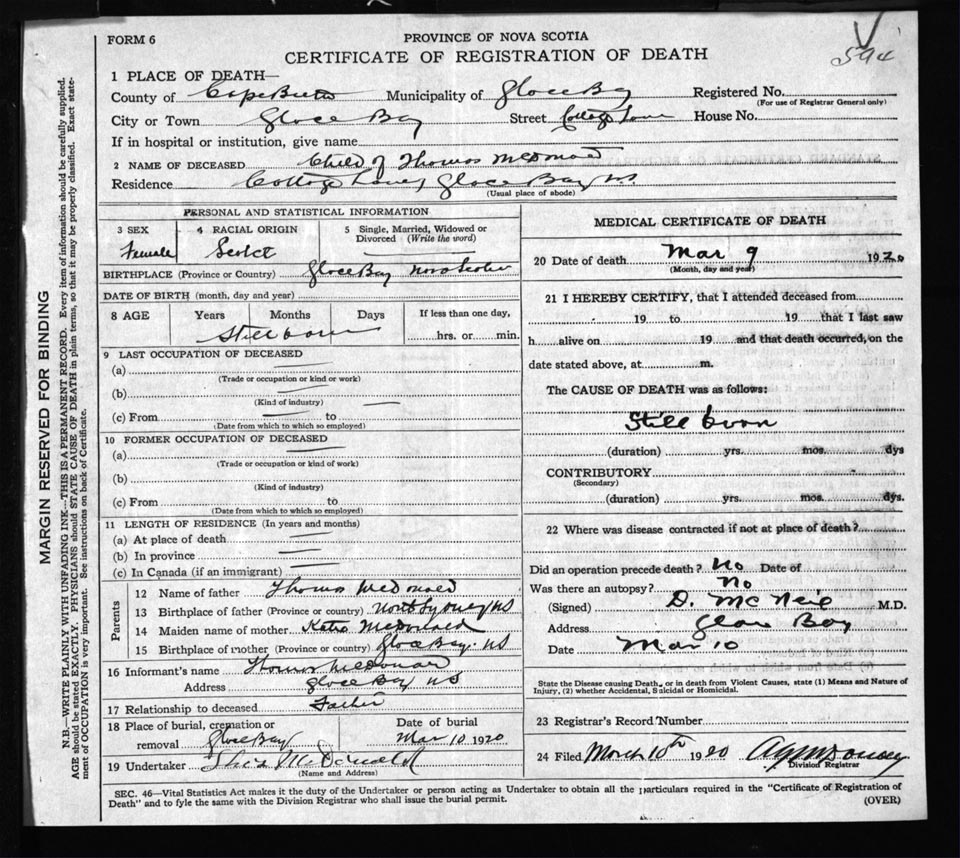 FORM 6
PROVINCE OF NOVA SCOTIA
CERTIFICATE OF REGISTRATION OF DEATH
594
1 PLACE OF DEATH—
County of Cape Breton Municipality of Glace Bay Registered No.
(For use of Registrar General only)
City or Town Glace Bay Street Cottage Lane House No.
If in hospital or institution, give name
2 NAME OF DECEASED Child of Thomas McDonald
Residence Cottage Lane, Glace Bay NS.
(Usual place of abode)
PERSONAL AND STATISTICAL INFORMATION
3 SEX 4 RACIAL ORIGIN 5 Single, Married, Widowed or Divorced (Write the word)
Female Scotch
BIRTHPLACE (Province or Country) Glace Bay Nova Scotia
DATE OF BIRTH (month, day and year)
8 AGE Years Months Days If less than one day,
Stillborn hrs. or min.
9 LAST OCCUPATION OF DECEASED
(a)
(Trade or occupation or kind or work)
(b)
(Kind of industry)
(c) From to
(Date from which to which so employed)
10 FORMER OCCUPATION OF DECEASED
(a)
(Trade or occupation or kind of work)
(b)
(Kind of industry)
(c) From to
(Date from which to which so employed)
11 LENGTH OF RESIDENCE (In years and months)
(a) At place of death
(b) In province
(c) In Canada (if an immigrant)
Parents
12 Name of father Thomas McDonald
13 Birthplace of father (Province or country) North Sydney NS
14 Maiden name of mother Katie McDonald
15 Birthplace of mother (Province or country) Glace Bay. NS
16 Informant's name Thomas McDonald
Address Glace Bay NS
17 Relationship to deceased Father
18 Place of burial, cremation or removal Glace Bay
Date of burial Mar 10 1920
19 Undertaker McDonald
(Name and Address)
MEDICAL CERTIFICATE OF DEATH
20 Date of death Mar 9 1920
(Month, day and year)
21 I HEREBY CERTIFY, that I attended deceased from
19 to 19 that I last saw
h alive on 19 and that death occurred, on the
date stated above, at m.
The CAUSE OF DEATH was as follows:
Still born
(duration) yrs. mos. dys
CONTRIBUTORY
(Secondary)
(duration) yrs. mos. dys.
22 Where was disease contracted if not at place of death?
Did an operation precede death? No Date of
Was there an autopsy? No
(Signed) D. McNeil M.D.
Address Glace Bay
Date Mar 10
State the Disease causing Death, or in death from Violent Causes, state (1) Means and Nature of
Injury, (2) whether Accidental, Suicidal or Homicidal.
23 Registrar's Record Number
24 Filed March 10th 1920
Division Registrar
SEC. 46—Vital Statistics Act makes it the duty of the Undertaker or person acting as Undertaker to obtain all the particulars required in the "Certificate of Registration of
Death" and to fyle the same with the Division Registrar who shall issue the burial permit.
(OVER)
MARGIN RESERVED FOR BINDING
N.B.—WRITE PLAINLY WITH UNFADING INK—THIS IS A PERMANENT RECORD. Every item of information should be carefully supplied.
AGE should be stated EXACTLY. PHYSICIANS should STATE CAUSE OF DEATH in plain terms, so that it may be properly classified. Exact state-
ment of OCCUPATION is very important. See instructions on back of Certificate.